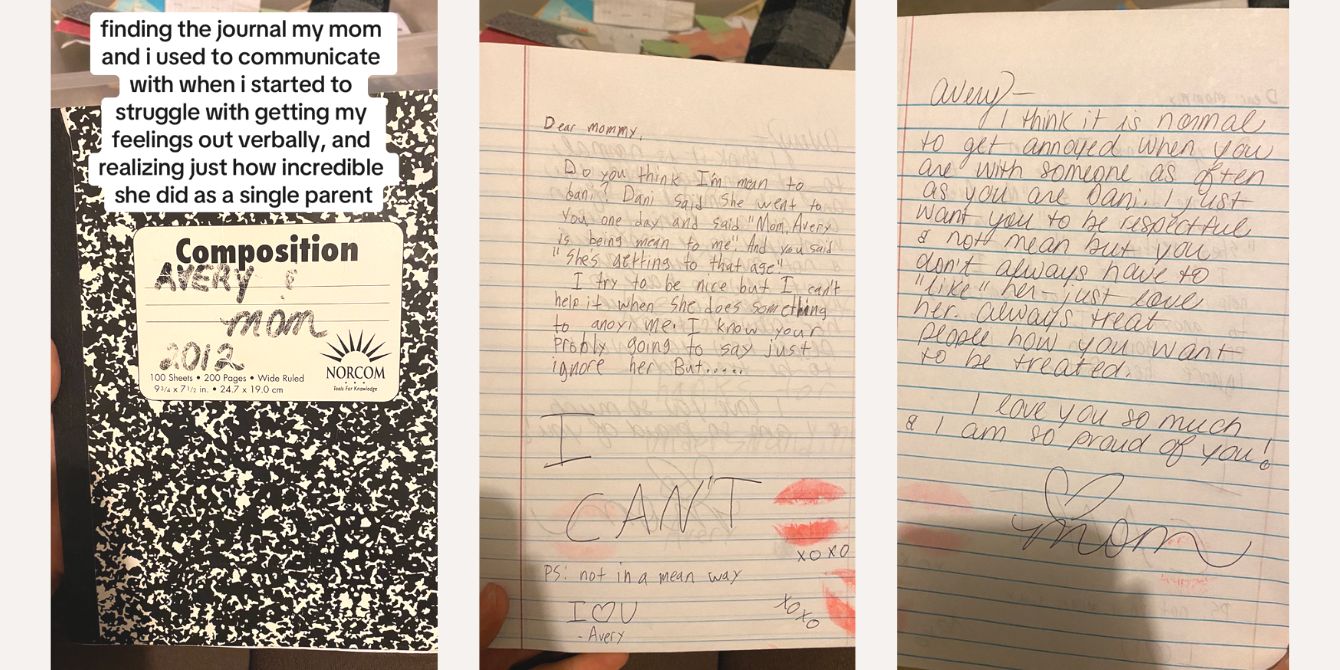 finding the journal my mom
and i used to communicate
with when i started to
struggle with getting my
feelings out verbally, and
realizing just how incredible
she did as a single parent
Composition
AVERY &
mom
2012
NORCOM
Tools For Knowledge
100 Sheets • 200 Pages • Wide Ruled
9 3/4 x 7 1/2 in. • 24.7 x 19.0 cm
Dear mommy,
Do you think I'm mean to
Dani? Dani said she went to
you one day and said "Mom, Avery
is being mean to me". And you said
"Shes getting to that age"
I try to be nice but I can't
help it when she does something
to anoyi me. I know your
probly going to say just
ignore her. But.....
I
CAN'T
XOXO
PS: not in a mean way
XOXO
I ♡ U
- Avery
Avery -
I think it is normal
to get annoyed when you
are with someone as often
as you are Dani. I just
want you to be respectful
& not mean but you
don't always have to
"like" her - just love
her. always treat
people how you want
to be treated.
I love you so much
& I am so proud of you!
♡
mom